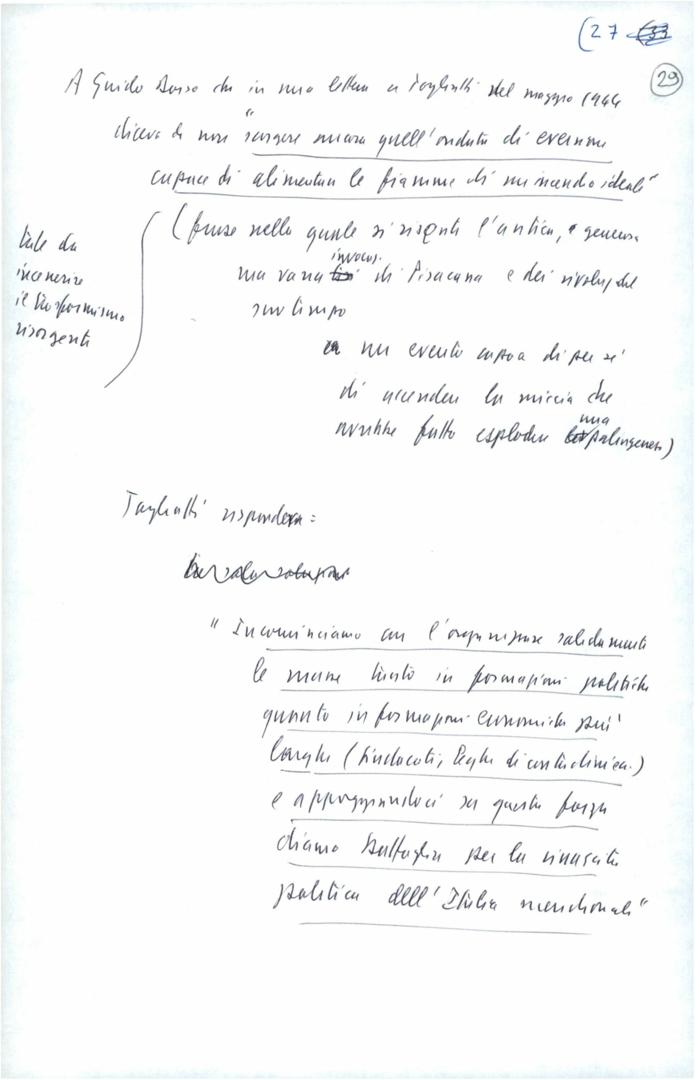 (27
29
A Guido Dorso che in una lettera a Togliatti del maggio 1944
diceva di non "sorgere ancora quell'ondata di
capace di alimentare le fiamme di un incendio ideale"
(frase nella quale si risente l'antica, e generosa
invocaz.
ma vana di Pisacane e dei rivoluz. del
suo tempo
tale da
incenerire
il trasformismo
risorgente
a un evento capace di per sé
di accendere la miccia che
avrebbe fatto esplodere una palingenesi)
Togliatti rispondeva:
"Incominciamo con l'organizzare saldamente
le masse tanto in formazioni politiche
quanto in formazioni economiche più
larghe (Sindacati, Leghe di contadini ecc.)
e appoggiandoci su questa forza
diamo battaglia per la rinascita
politica dell'Italia meridionale"